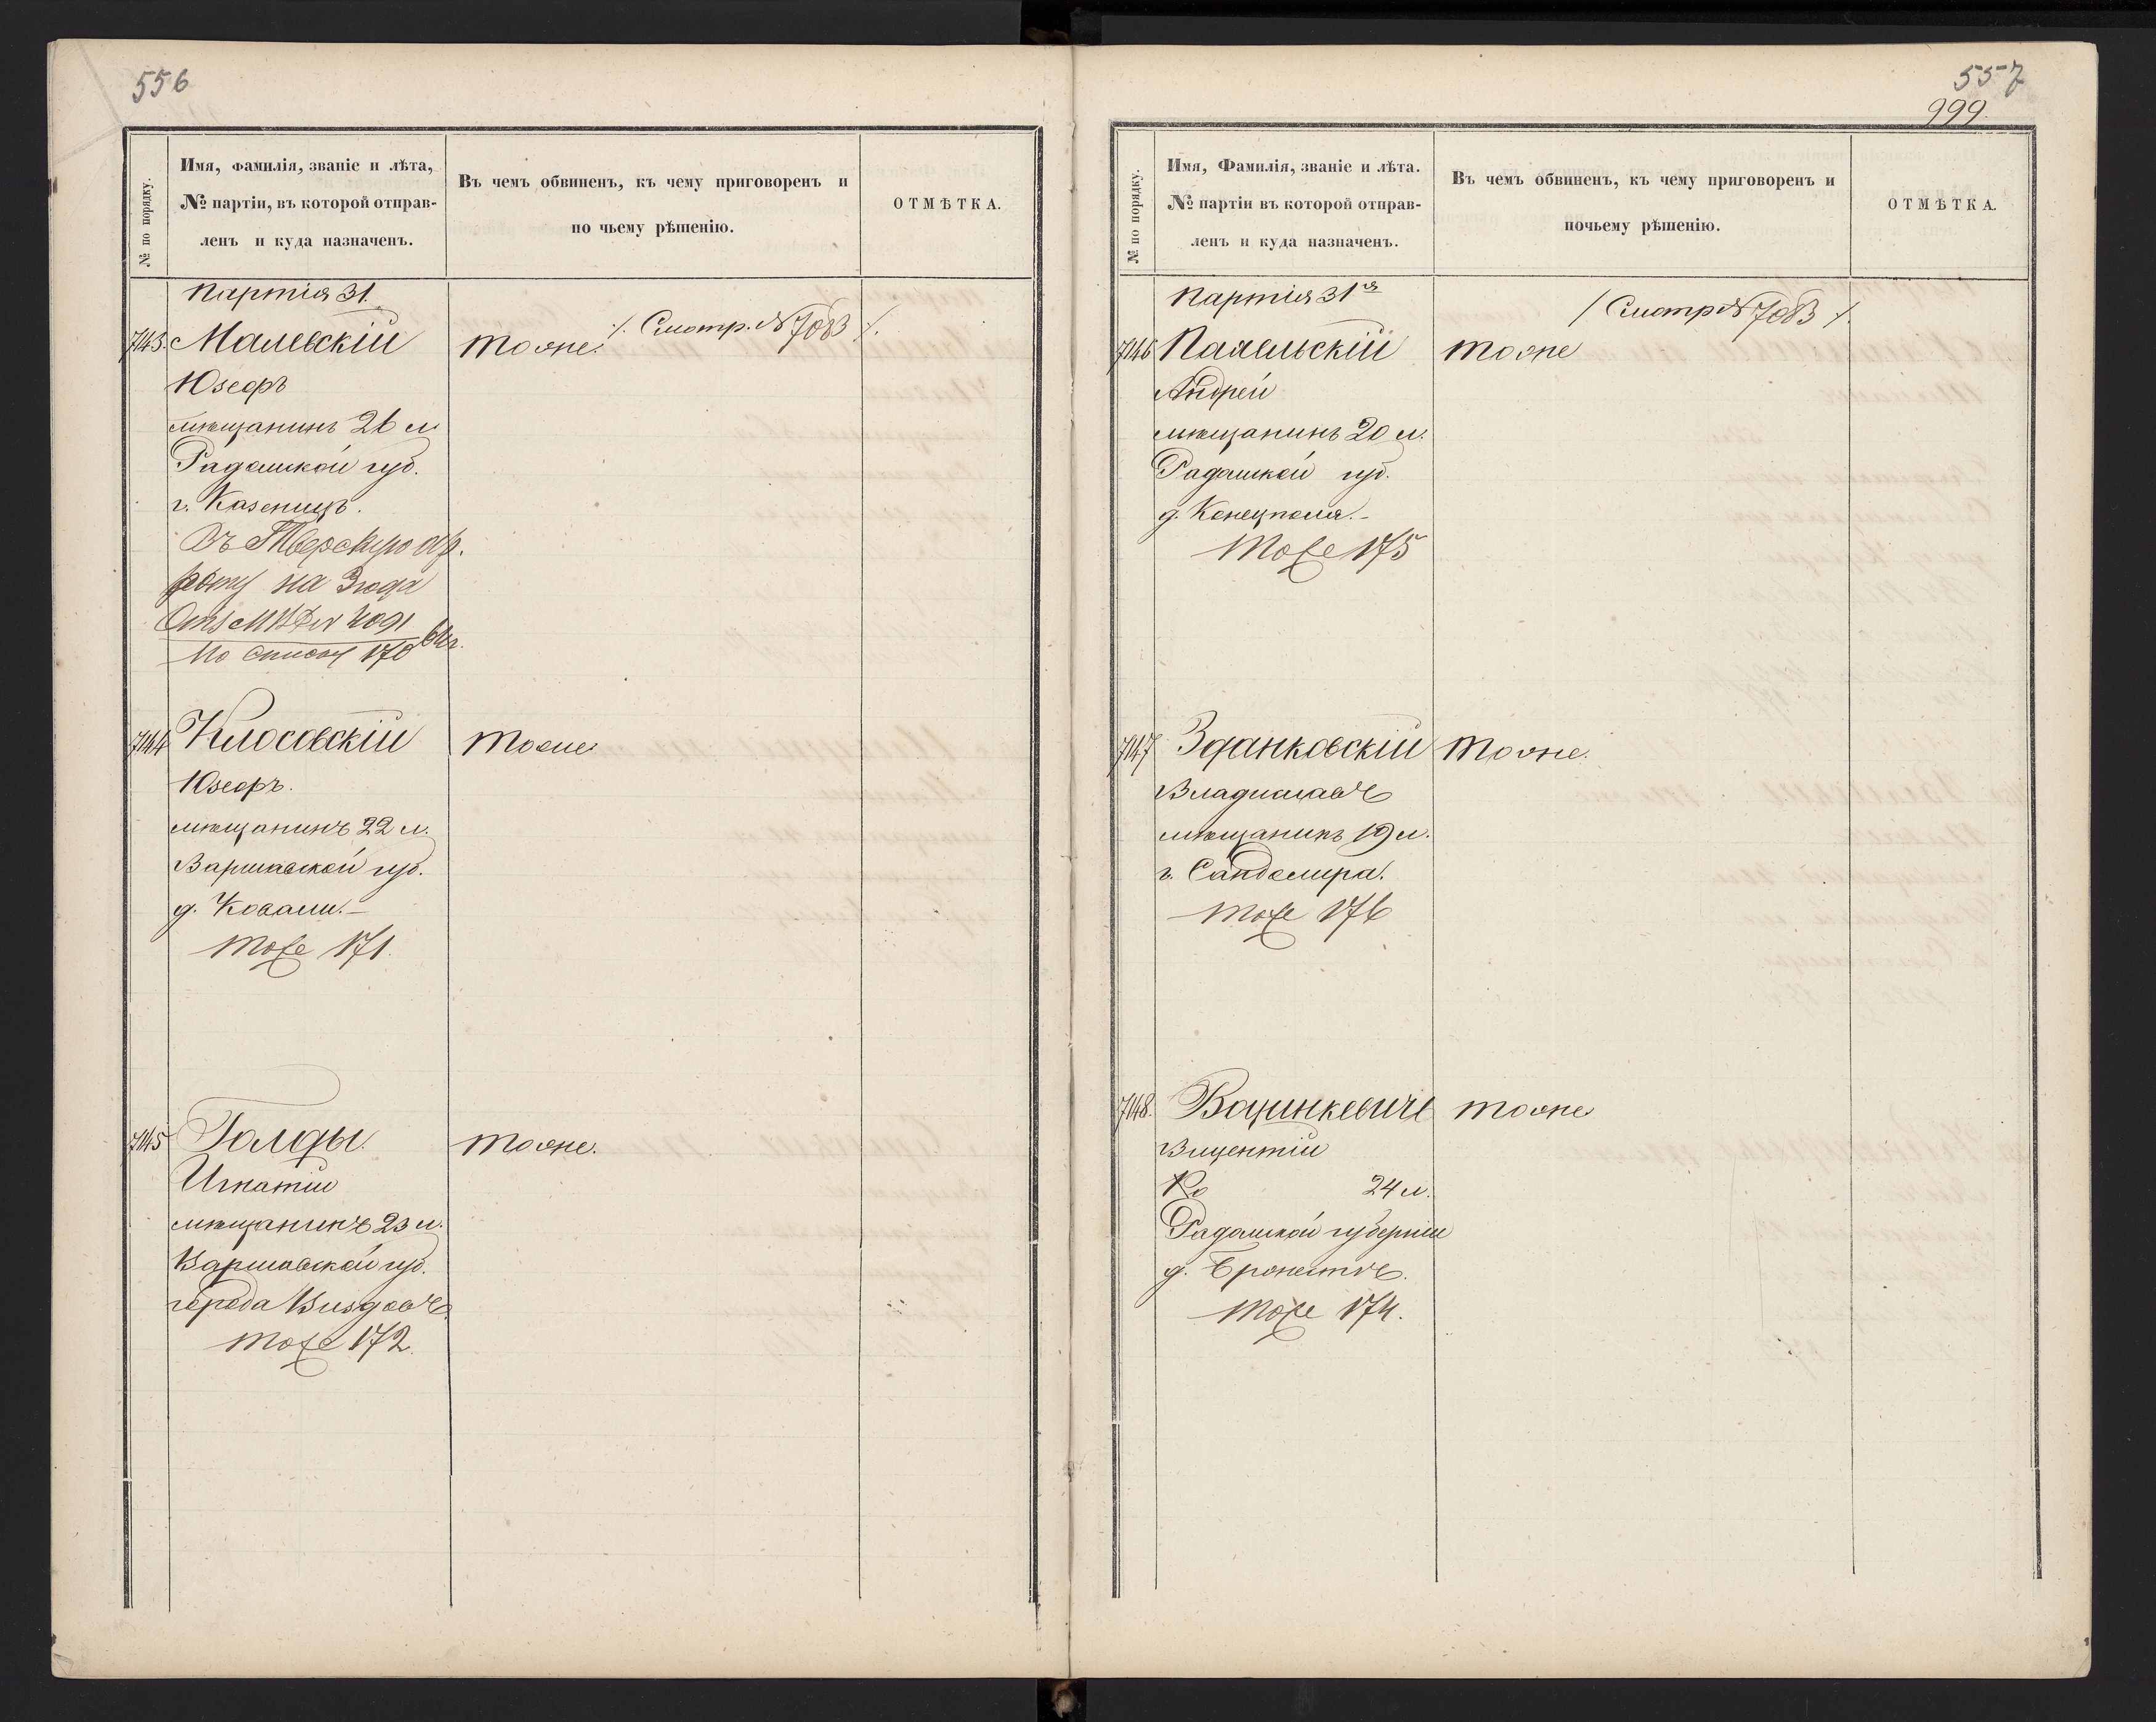 556
№ по порядку.
Имя, фамилія, званіе и лѣта,
№ партіи, въ которой отправ-
ленъ и куда назначенъ.
Въ чемъ обвиненъ, къ чему приговоренъ и
по чьему рѣшенію.
ОТМѢТКА.
партія 31.
7143. Малевскій тоже. /. Смотр. № 7083 /.
Юзефъ
мѣщанинъ 26 л.
Радомской губ.
г. Казеницъ.
Въ Тверскую ар.
роту на 3 года
4091
64 г.
По списку 170
7144 Клосовскій тоже
Юзефъ.
мѣщанинъ 22 л.
Варшавской губ.
д. Ковали.-
тоже 171.
7145 Голды. тоже.
Игнатій
мѣщанинъ 23 л.
Варшавской губ.
города Визговъ.
тоже 172.
557
999.
№ по порядку.
Имя, Фамилія, званіе и лѣта.
№ партіи въ которой отправ-
ленъ и куда назначенъ.
Въ чемъ обвиненъ, къ чему приговоренъ и
почьему рѣшенію.
ОТМѢТКА.
партія 31я
/ Смотр № 7083 /.
7146 Паяльскій тоже
Андрей
мѣщанинъ 20 л.
Радомской губ.
д. Конецполя.-
тоже 175
7147 Зданковскій тоже.
Владиславъ
мѣщанинъ 19 л.
г. Сандомира.
тоже 176
7148. Воцинкевичъ тоже
Вицентій
24 л.
Радомской губерніи
д.
тоже 174.